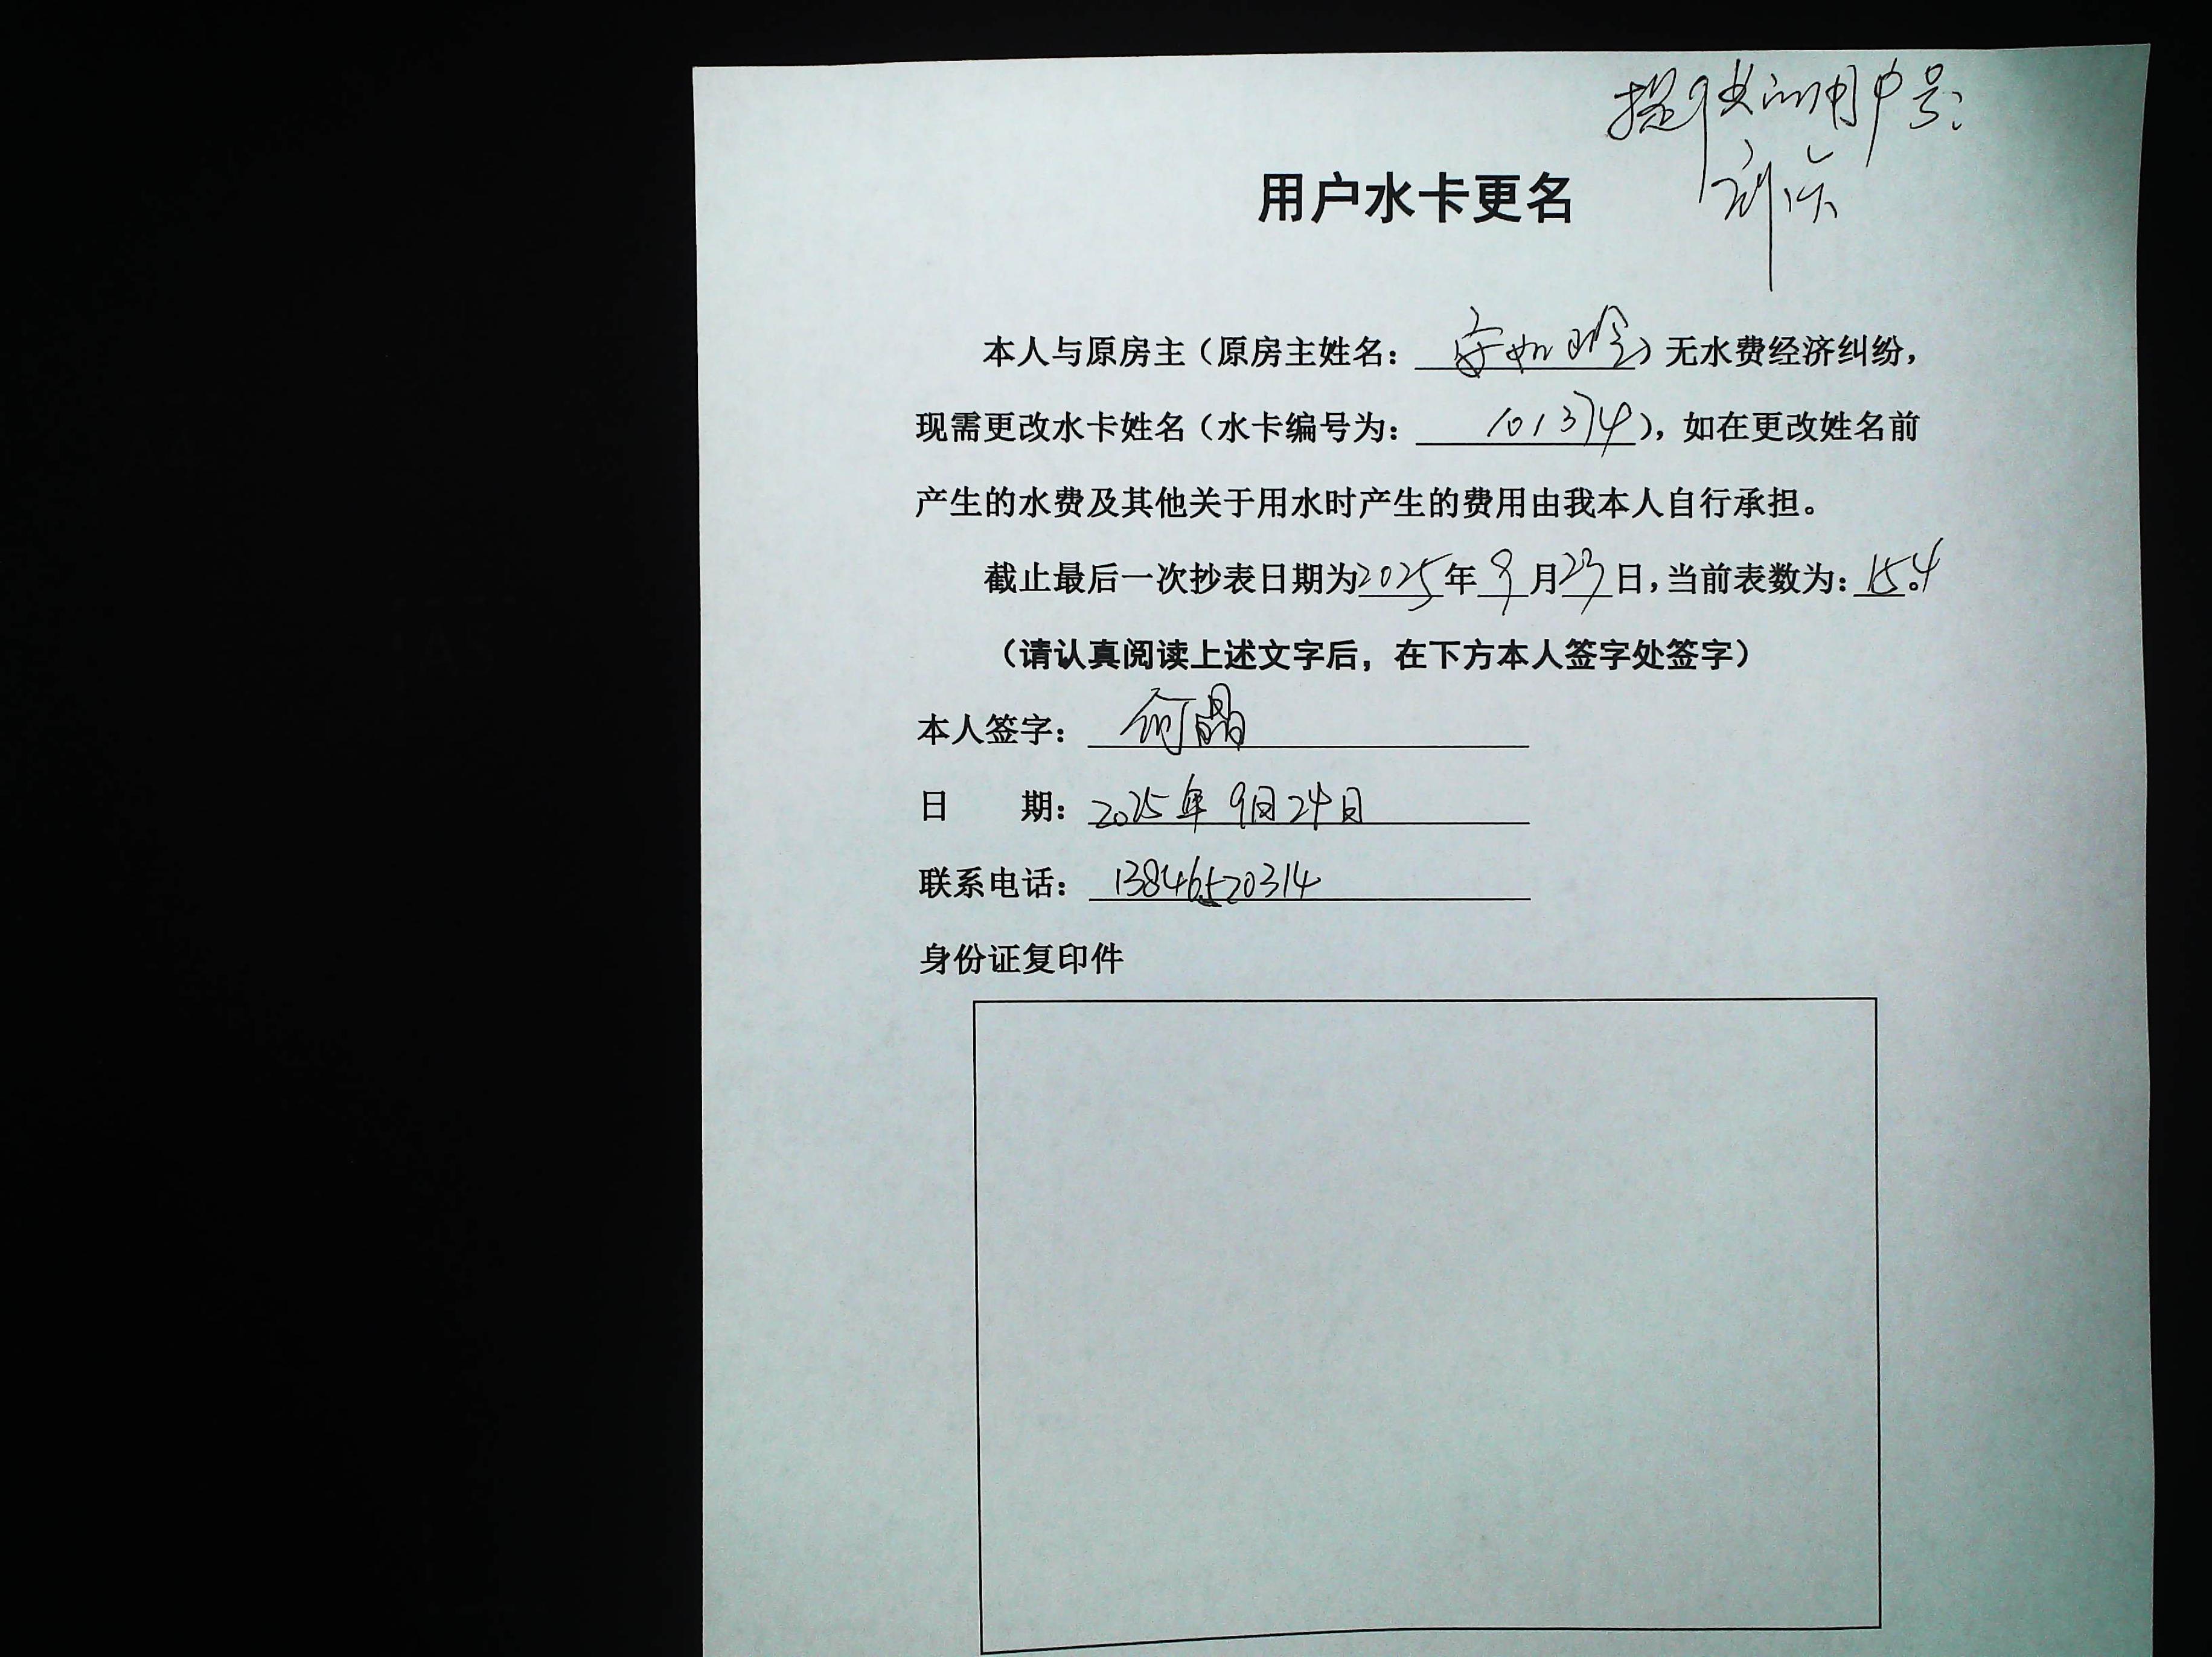 提供的用户号:
用户水卡更名
本人与原房主（原房主姓名：安如玲）无水费经济纠纷，
现需更改水卡姓名（水卡编号为：101374），如在更改姓名前
产生的水费及其他关于用水时产生的费用由我本人自行承担。
截止最后一次抄表日期为2025年9月23日，当前表数为：154。
（请认真阅读上述文字后，在下方本人签字处签字）
本人签字：何晶
日 期：2025年9月24日
联系电话：13846520314
身份证复印件